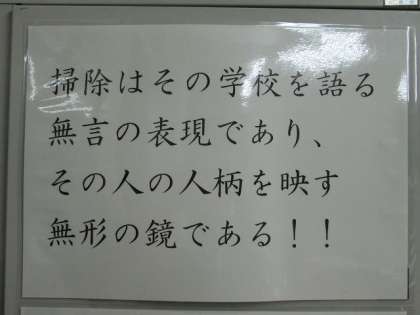 掃除はその学校を語る
無言の表現であり、
その人の人柄を映す
無形の鏡である！！